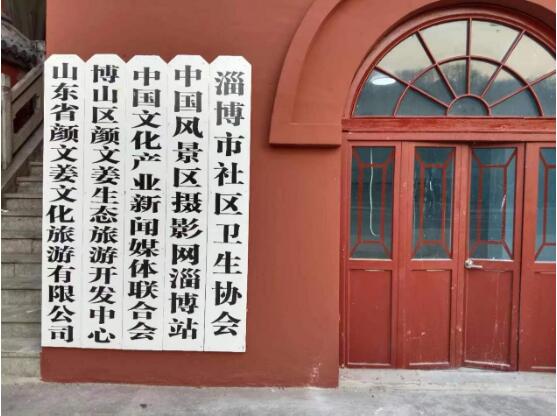 淄博市社区卫生协会
中国风景区摄影网淄博站
中国文化产业新闻媒体联合会
博山区颜文姜生态旅游开发中心
山东省颜文姜文化旅游有限公司